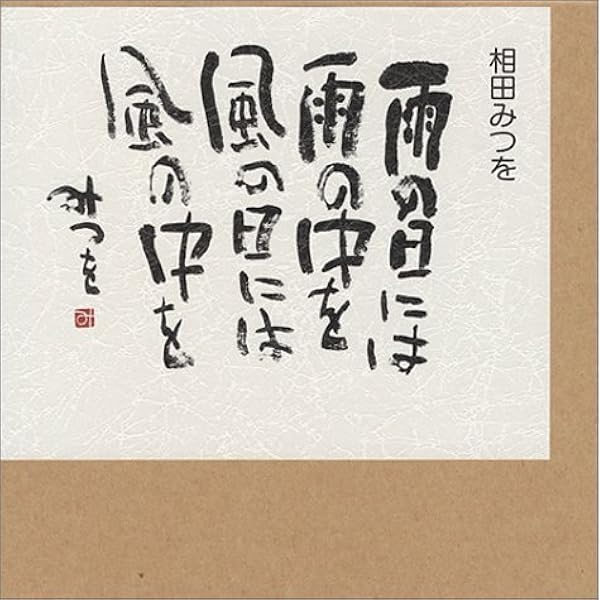 相田みつを
雨の日には
雨の中を
風の日には
風の中を
みつを
み